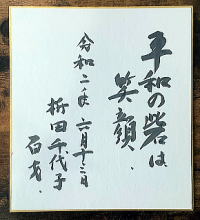 平和の砦は
笑顔．
令和二年六月十二日
折田千代子
百才．